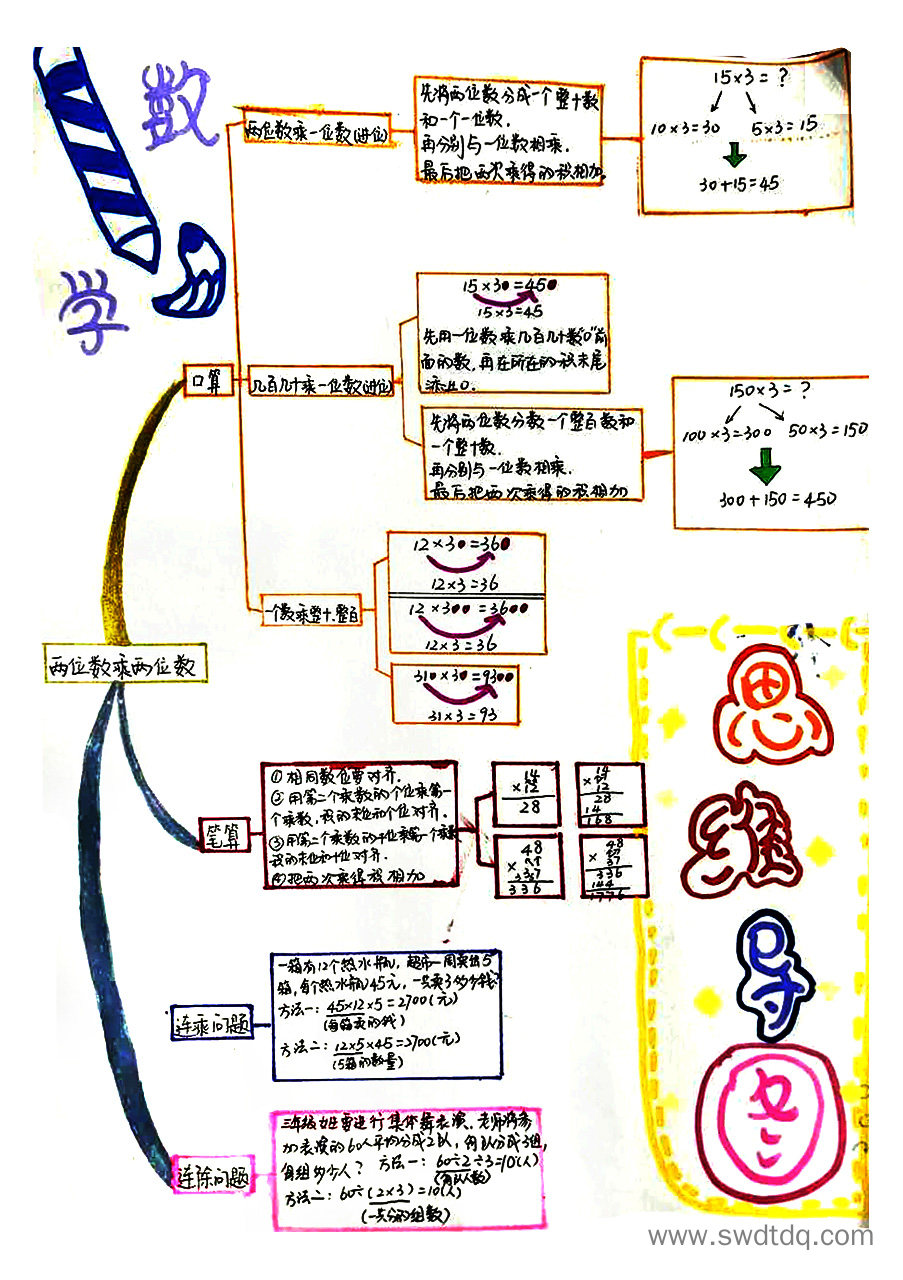 数
学
两位数乘一位数(进位)
先将两位数分成一个整十数
和一个一位数.
再分别与一位数相乘.
最后把两次乘得的积相加.
15×3=?
10×3=30 5×3=15
30+15=45
口算
几百几十乘一位数(进位)
15×30=450
15×3=45
先用一位数乘几百几十数"0"前
面的数,再在所在的积末尾
添上0.
先将两位数分数一个整百数和
一个整十数.
再分别与一位数相乘.
最后把两次乘得的积相加
150×3=?
100×3=300 50×3=150
300+150=450
一个数乘整十、整百
12×30=360
12×3=36
12×300=3600
12×3=36
310×30=9300
31×3=93
两位数乘两位数
笔算
①相同数位要对齐.
②用第二个乘数的个位乘第一
个乘数,积的末位和个位对齐.
③用第二个乘数的十位乘第一个乘数
积的末位和十位对齐.
④把两次乘得积相加
14
×12
28
14
×12
28
14
168
48
×37
336
48
×37
336
144
1776
连乘问题
一箱有12个热水瓶,超市一周卖出5
箱,每个热水瓶45元,一共卖了多少钱?
方法一:45×12×5=2700(元)
(每箱卖的钱)
方法二:12×5×45=2700(元)
(5箱的数量)
连除问题
三年级女生要进行集体舞表演,老师将参
加表演的60人平均分成2队,每队分成3组,
每组多少人? 方法一:60÷2÷3=10(人)
(每队人数)
方法二:60÷(2×3)=10(人)
(一共分的组数)
思
维
导
图
www.swdtdq.com